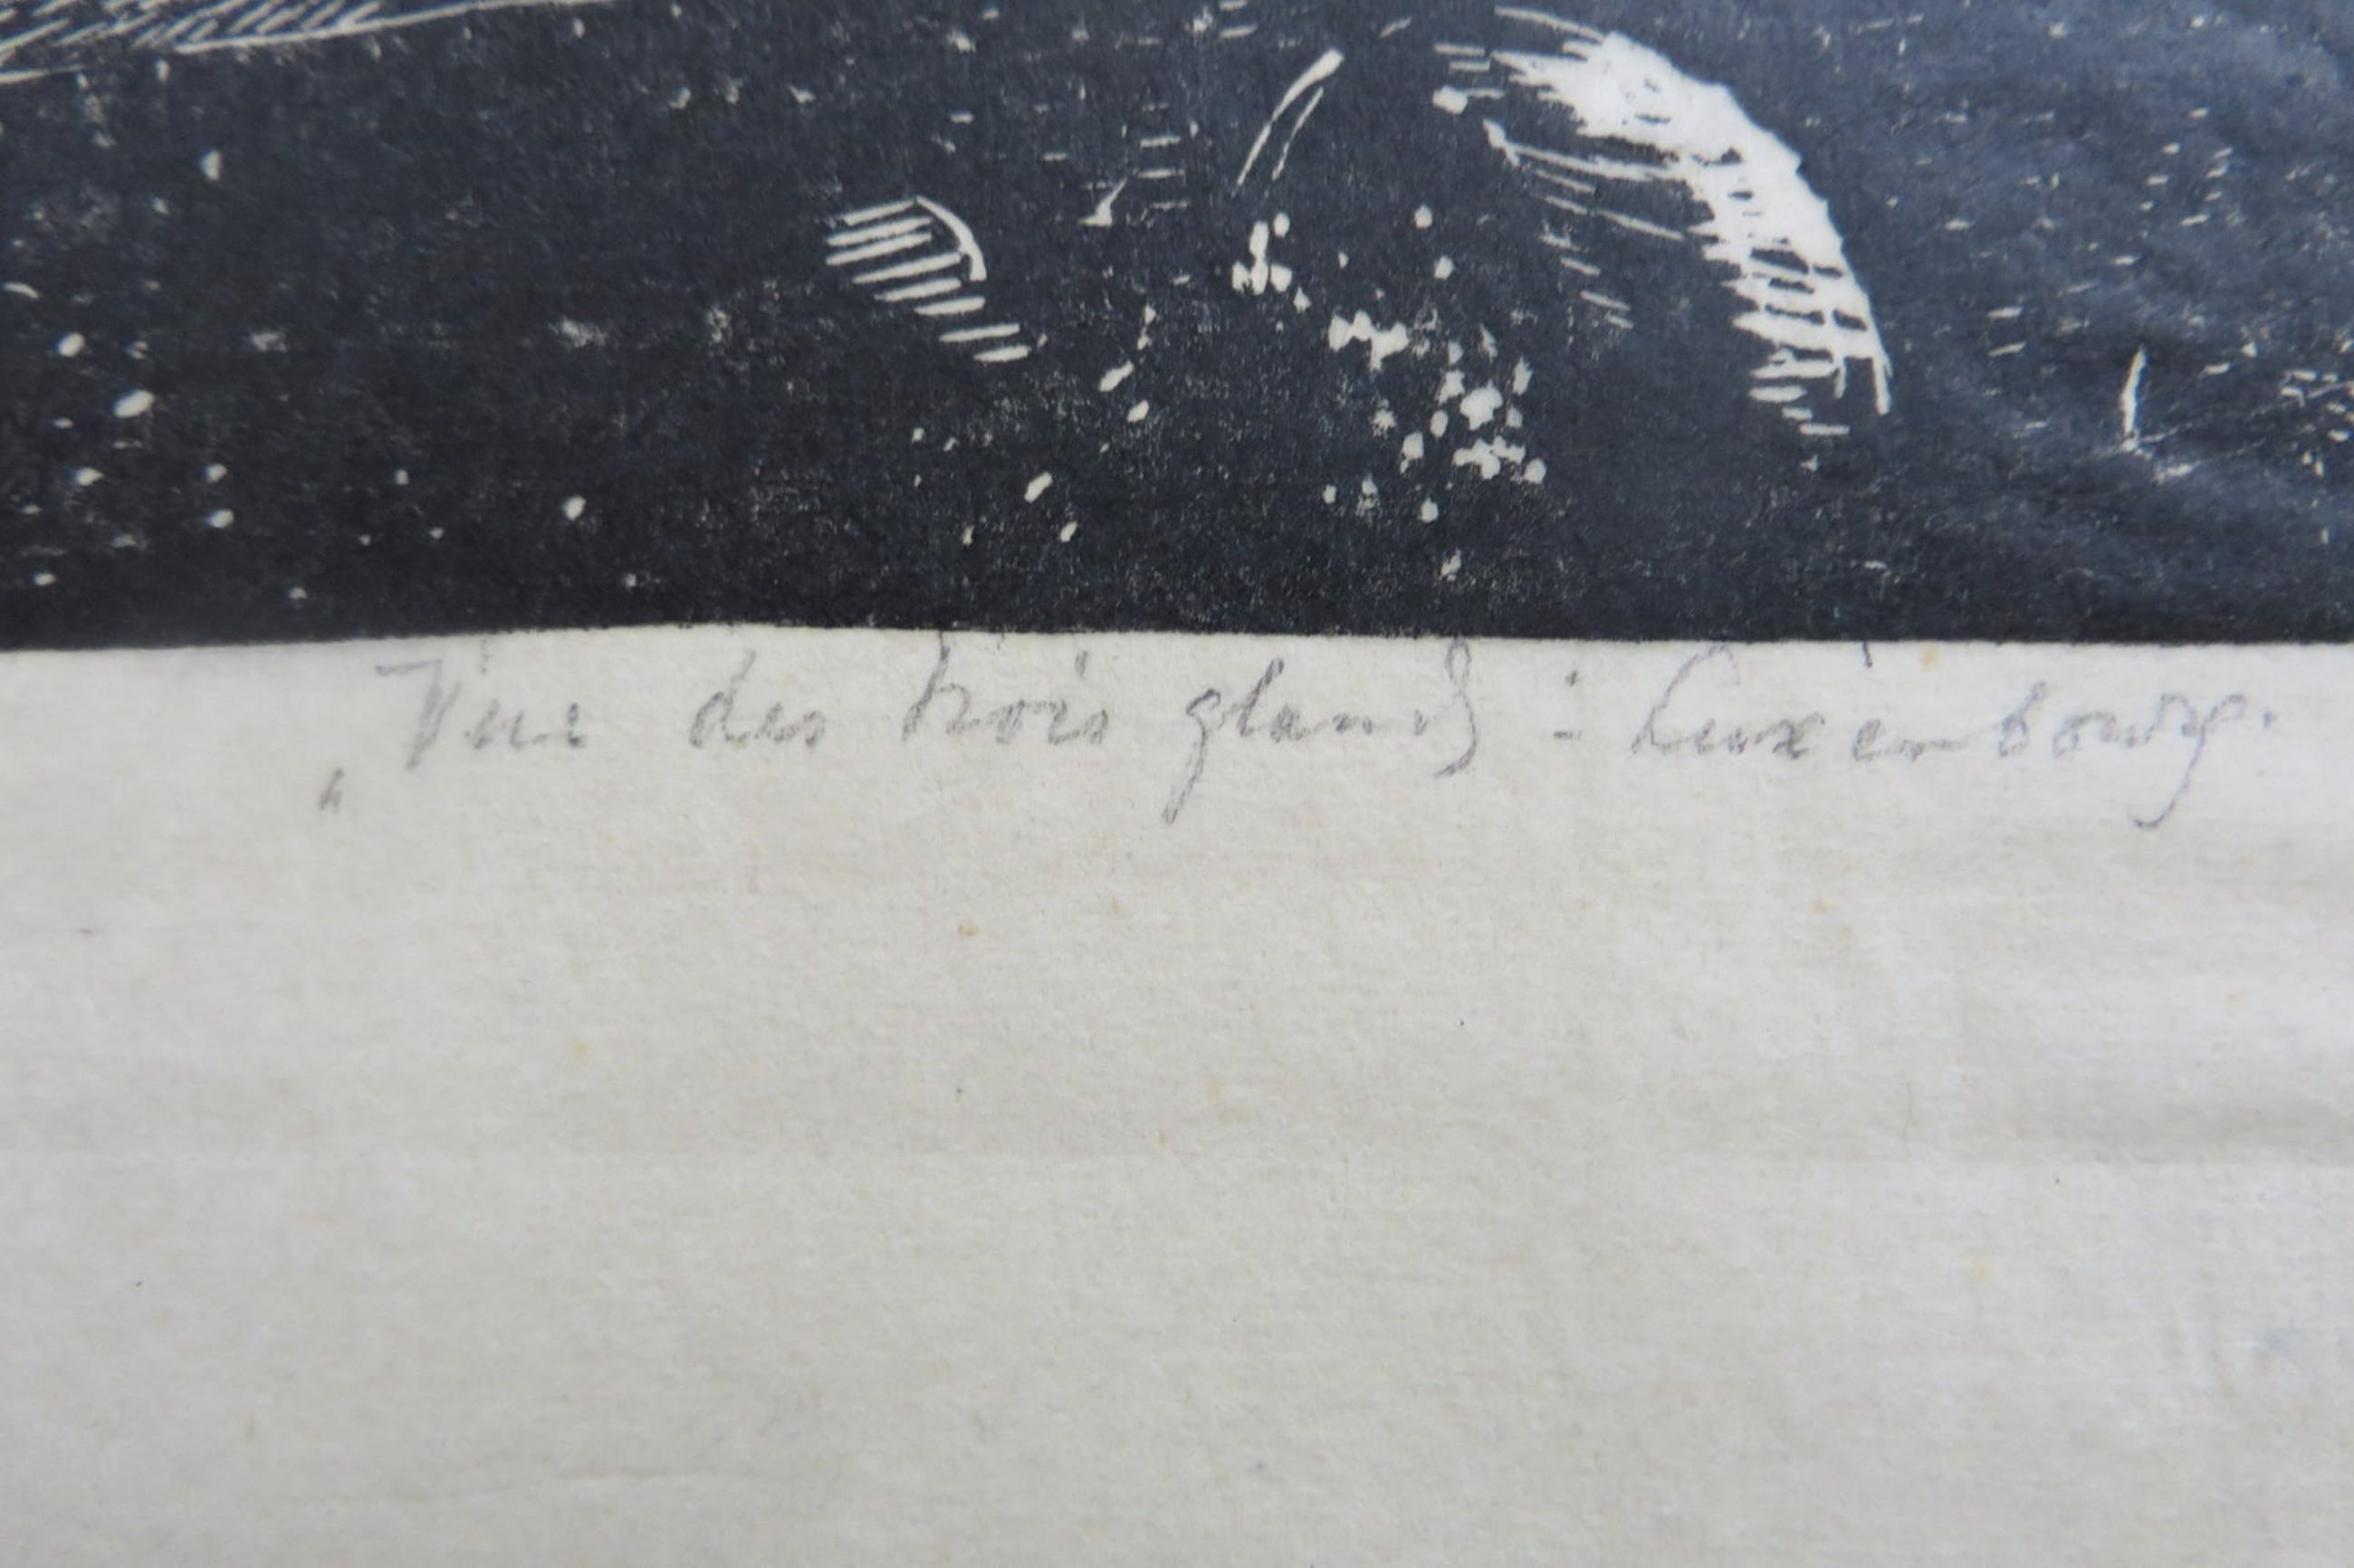 „Vue des trois glands : Luxembourg.